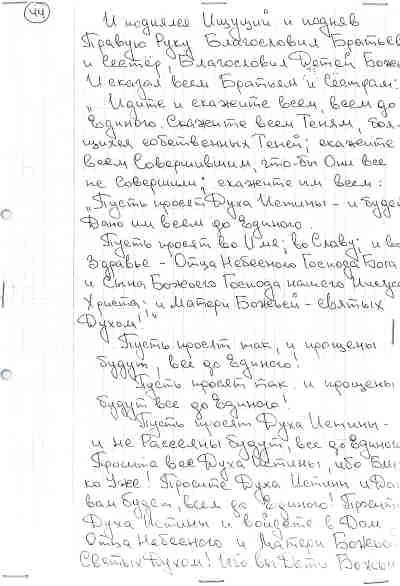 44
И поднялся Ищущий и подняв
Правую Руку Благословил Братьев
и Сестёр, Благословил Детей Божь
И сказал всем Братьям и Сёстрам:
„Идите и скажите всем, всем до
Единого. Скажите всем Теням, боя-
щихся собственных Теней; скажите
всем Совершившим, что-бы Они все
не Совершили; скажите им всем:
„Пусть просят Духа Истины - и будет
Дано им всем до Единого.
Пусть просят во Имя; во Славу; и во
Здравье - Отца Небесного Господа Бога
и Сына Божьего Господа нашего Иисуса
Христа; и Матери Божьей - Святых
Духом!"
Пусть просят так, и прощены
будут, все до Единого!
Пусть просят так, и прощены
будут все до Единого!
Пусть просят Духа Истины -
и не Рассеяны будут, все до Единого
Просите все Духа Истины, ибо Бли
ко Уже! Просите Духа Истины и Да
вам будет, всем до Единого! Просите
Духа Истины и войдете в Дом
Отца Небесного и Матери Божьей
Святых Духом! Ибо вы Дети Божьи